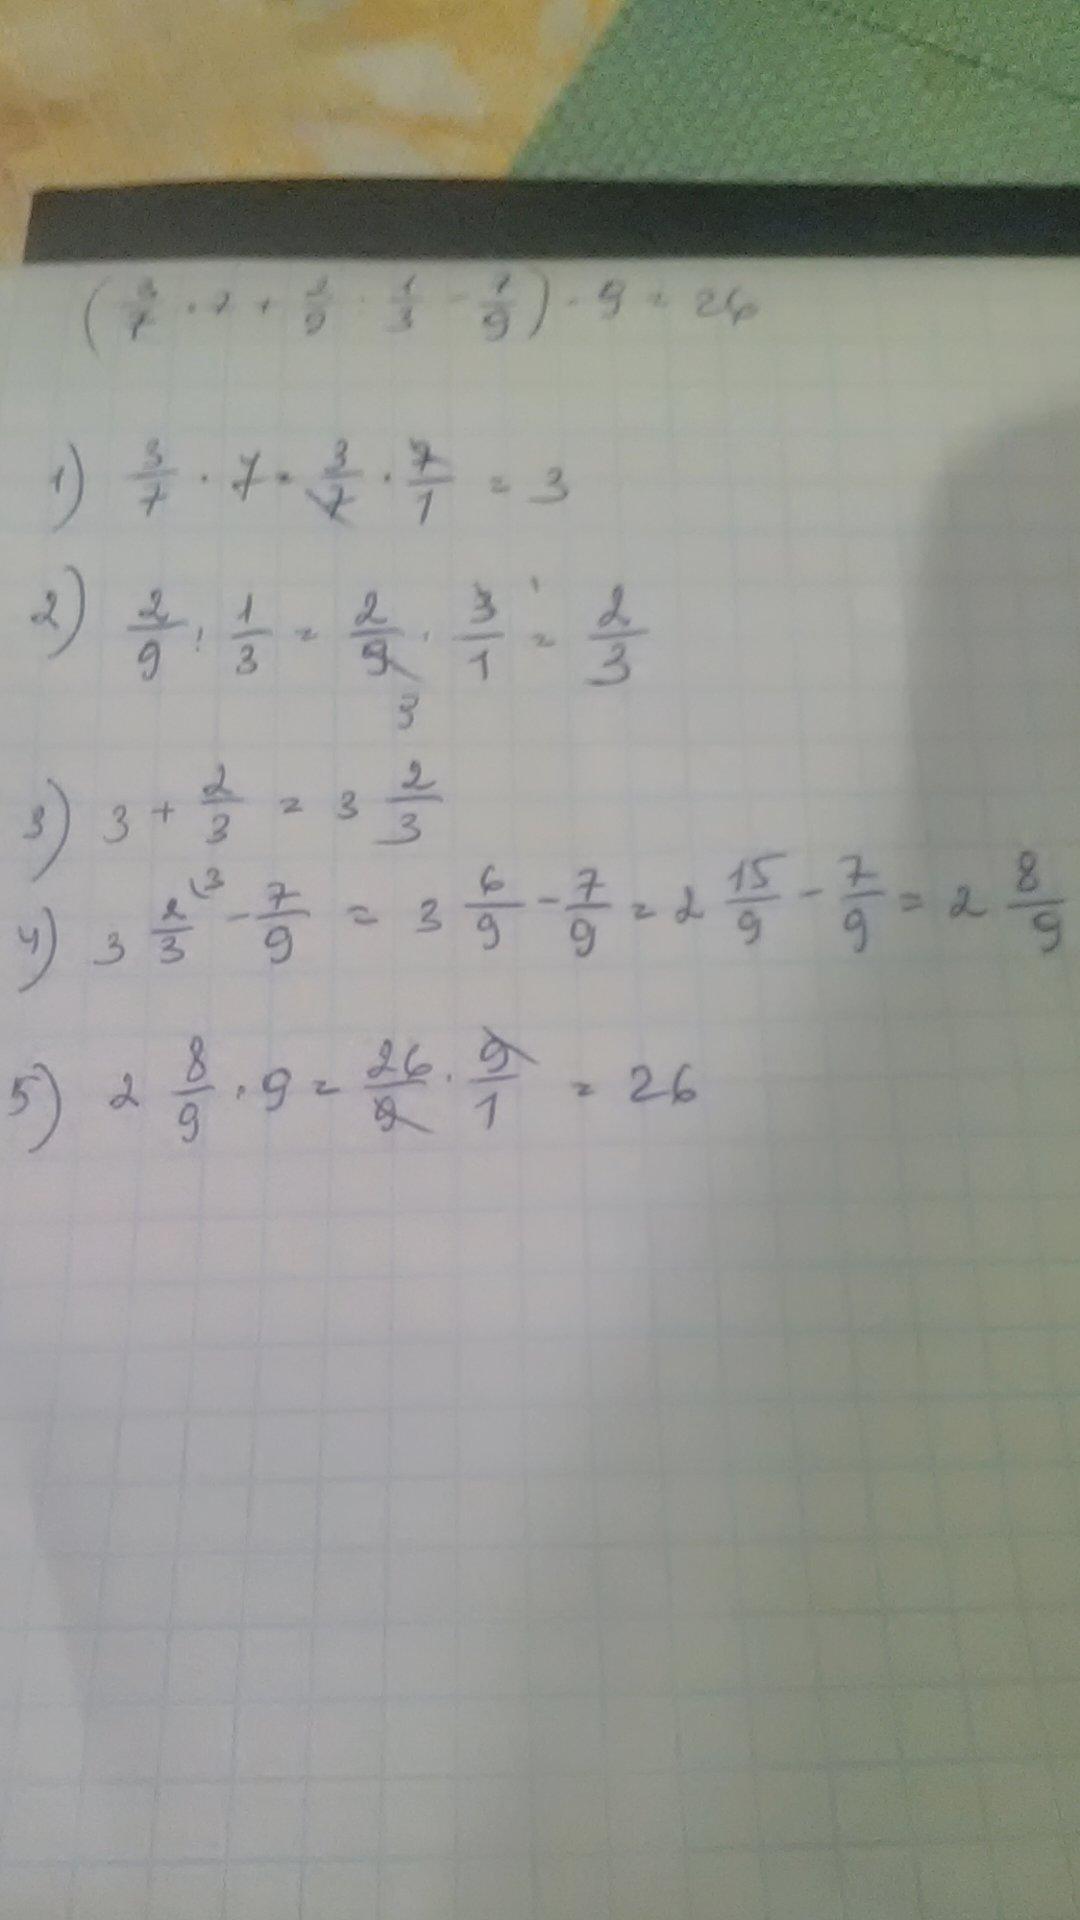 (3/7 · 7 + 2/9 : 1/3 - 7/9) · 9 = 26
1) 3/7 · 7 = 3/7 · 7/1 = 3
2) 2/9 : 1/3 = 2/9 · 3/1 = 2/3
3
3) 3 + 2/3 = 3 2/3
4) 3 2/3 (3 - 7/9 = 3 6/9 - 7/9 = 2 15/9 - 7/9 = 2 8/9
5) 2 8/9 · 9 = 26/9 · 9/1 = 26